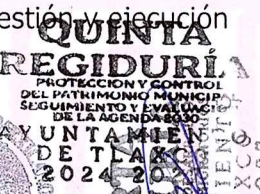 estión y ejecución
QUINTA
REGIDURÍA
PROTECCION Y CONTROL
DEL PATRIMONIO MUNICIP
SEGUIMIENTO Y EVALUACI
DE LA AGENDA 2030
AYUNTAMIEN
DE TLAXC
2024 202